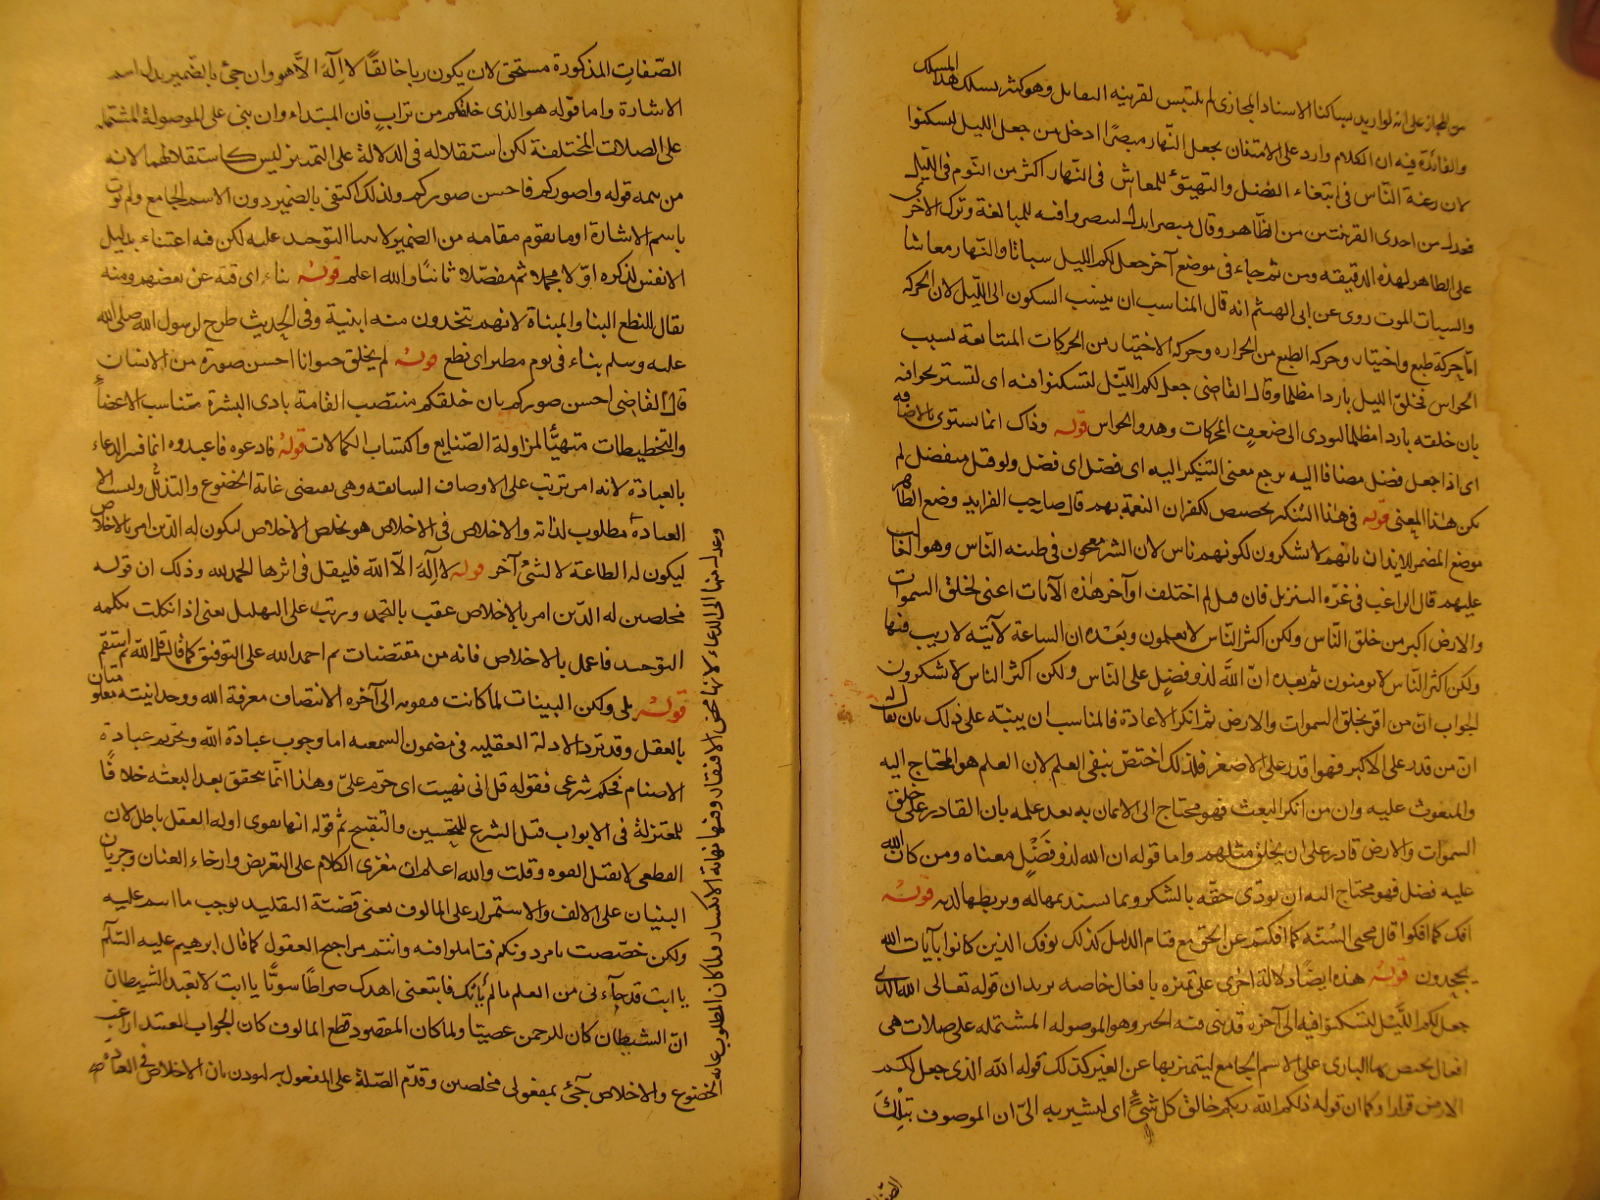 من المجاز على انه لو اريد ساكنا الاسناد المجازى لم يلتبس لقرينة التقابل وهو كثيرا يسلك هذا المسلك
والفائدة فيه ان الكلام وارد على الامتنان بجعل النهار مبصرًا ادخل من جعل الليل ليسكنوا
لان رغبة النّاس فى ابتغاء الفضل والتهيئ للمعاش فى النّهار اكثر من النّوم فى اللّيل
فعدل من احدى القرينتين من الظّاهر وقال مبصرا بدل لتبصروا فيه للمبالغة وترك الاخرى
على الظاهر لهذه الدقيقة ومن ثم جاء فى موضع آخر جعل لكم الليل سباتا والنّهار معاشا
والسبات الموت روى عن ابى الهيثم انه قال المناسب ان ينسب السكون الى اللّيل لان الحركة
امّا حركة طبع او اختيار وحركة الطبع من الحرارة وحركة الاختيار من الحركات المتتابعة بسبب
الحواس فخلق الليل باردا مظلما وقال القاضى جعل لكم اللّيل لتسكنوا فيه اى لتستريحوا فيه
بان خلقه باردا مظلما ليودى الى ضعف المحركات وهدو الحواس قوله وذاك انما يستوى بالاضافة
اى اذا جعل فضل مضافا اليه يرجع معنى التنكير اليه اى فضل اى فضل ولو قيل متفضل لم
يكن هذا المعنى قوله فى هذا التكرير تخصيص لكفران النعمة بهم قال صاحب الفرايد وضع الظاهر
موضع المضمر للايذان بانهم لا يشكرون لكونهم ناس لان الشر معجون فى طينة النّاس وهو الغالب
عليهم قال الراغب فى غرّة التنزيل فان قيل لم اختلف اواخر هذه الآيات اعنى لخلق السموات
والارض اكبر من خلق النّاس ولكن اكثر النّاس لا يعلمون وبَعْده ان الساعة لآتيّة لا ريب فيها
ولكن اكثر النّاس لا يومنون ثم بعده انّ اللّه لذو فضل على النّاس ولكن اكثر الناس لا يشكرون
الجواب انّ من اقر بخلق السموات والارض ثم انكر الاعادة فالمناسب ان ينبّه على ذلك بان يقال له
انّ من قدر على الاكبر فهو اقدر على الاصغر فلذلك اختصّ بنفى العلم لان العلم هو المحتاج اليه
والمبعوث عليه وان من انكر البعث فهو محتاج الى الايمان به بعد علمه بان القادر على خلق
السموات والارض قادر على ان يخلق مثلهم واما قوله ان الله لذو فضْلٍ معناه ومن كان لله
عليه فضل فهو محتاج اليه ان يودّى حقّه بالشكر وبما يستديمها له ويربطها لديه قوله
افك كما افكوا قال محيى السُنّة كما افكتم عن الحق مع قيام الدليل كذلك يوفك الذين كانوا بآيات الله
يجحدون قوله هذه ايضًا دلالة اخرى على تميزه بافعال خاصه يريد ان قوله تعالى الله الذى
جعل لكم اللَّيْل لتسكنوا فيه الى آخره قد بنى فيه الخبر وهو الموصوله المشتمله على صلات هى
افعال يختص بها البارى على الاسم الجامع ليتميز بها عن الغير كذلك قوله الله الذى جعل لكم
الارض قرارا وكما ان قوله ذلكم الله ربكم خالق كل شئٍ اى اشير به الى ان الموصوف بتِلْكَ
الصّفات المذكورة مستحق لان يكون ربا خالقًا لا اِلٰهَ الاّ هو وان جئ بالضّمير بدل اسم
الاشارة واما قوله هو الذى خلقكم من ترابٍ فان المبتداء وان بنى على الموصولة المشتملة
على الصلات المختلفة لكن استقلاله فى الدلالة على التميز ليس كاستقلالهما لانه
من تتمه قوله واصوركم فاحسن صوركم ولذلك اكتفى بالضمير دون الاسم الجامع ولم يؤت
باسم الاشارة او ما يقوم مقامه من الضمير لا سيما التوحيد عليه لكن فيه اعتناء بدليل
الانفس لذكره اوّلا مجملا ثم مفصّلا ثانيًا والله اعلم قولهُ بناء اى قبة عن بعضهم ومنه
يقال للنطع البنا والمبناة لانهم يتخذون منه ابنية وفى الحديث طرح لرسول الله صلى الله
عليه وسلم بناء فى يوم مطير اى نطع قوله لم يخلق حيوانا احسن صورة من الانسان
قال القاضى احسن صوركم بان خلقكم منتصب القامة بادى البشرة متناسب الاعضآ
والتخطيطات متهيًّا لمزاولة الصّنايع واكتساب الكمالات قولهُ فادعوه فاعبدوه انما فسر الدعاء
بالعبادة لانه امر ترتب على الاوصاف السابقه وهى تقتضى غاية الخضوع والتذلّل وليست الا
العبادة مطلوب لذاته والاخلاص فى الاخلاص هو يخلص الاخلاص ليكون له الدّين امر بالاخلاص
ليكون له الطاعة لا لشئ آخر قوله لا اِلٰهَ الاّ الله فليقل فى اثرها الحمد لله وذلك ان قوله
مخلصين له الدّين امر بالاخلاص عقب بالتحمد ورتب على التهليل يعنى اذا تكلمت بكلمة
التوحيد فاعمل بالاخلاص فانه من مقتضيات ثم احمد الله على التوفيق كما قال قل الله ثم استقم
قولهُ بلى ولكن البينات لما كانت مقويه الى آخره الانتصاف معرفة الله ووحدانيته معلومتان
بالعقل وقد ترد الادلة العقليه فى مضمون السمعيه اما وجوب عبادة الله وتحريم عبادة
الاصنام فحكم شرعى فقوله قل انى نهيت اى حرّم علىّ وهذا انّما يتحقق بعد البعثه خلافًا
للمعتزلة فى الابواب قبل الشرع للتحسين والتقبيح ثم قوله انها تقوى ادلة العقل باطل لان
القطعى لا يقبل القوه وقلت والله اعلم ان مغزى الكلام على التعريض وارخاء العنان وجريان
البنيان على الالف والاستمرار على المالوف يعنى قضيّة التقليد يوجب ما اتم عليه
ولكن خصّصت بامر دونكم فتاملوا فيه وانتم مراجع العقول كما قال ابرهيم عليه السّلم
يا ابت قد جآء نى من العلم ما لم يأتك فاتبعنى اهدك صراطًا سويًّا يا ابت لا تعبد الشيطان
انّ الشيطان كان للرحمن عصيّا ولما كان المقصود قطع المالوف كان الجواب العتيد
الخضوع والاخلاص جئ بمفعولى مخلصين وقدّم الصّلة على المفعول به ليودن بان الاخلاص فى العبادة
وعدل منها الى الدعاء لانها مخ الافتقار وفيها نهاية الانكسار ولما كان المطلوب غاية